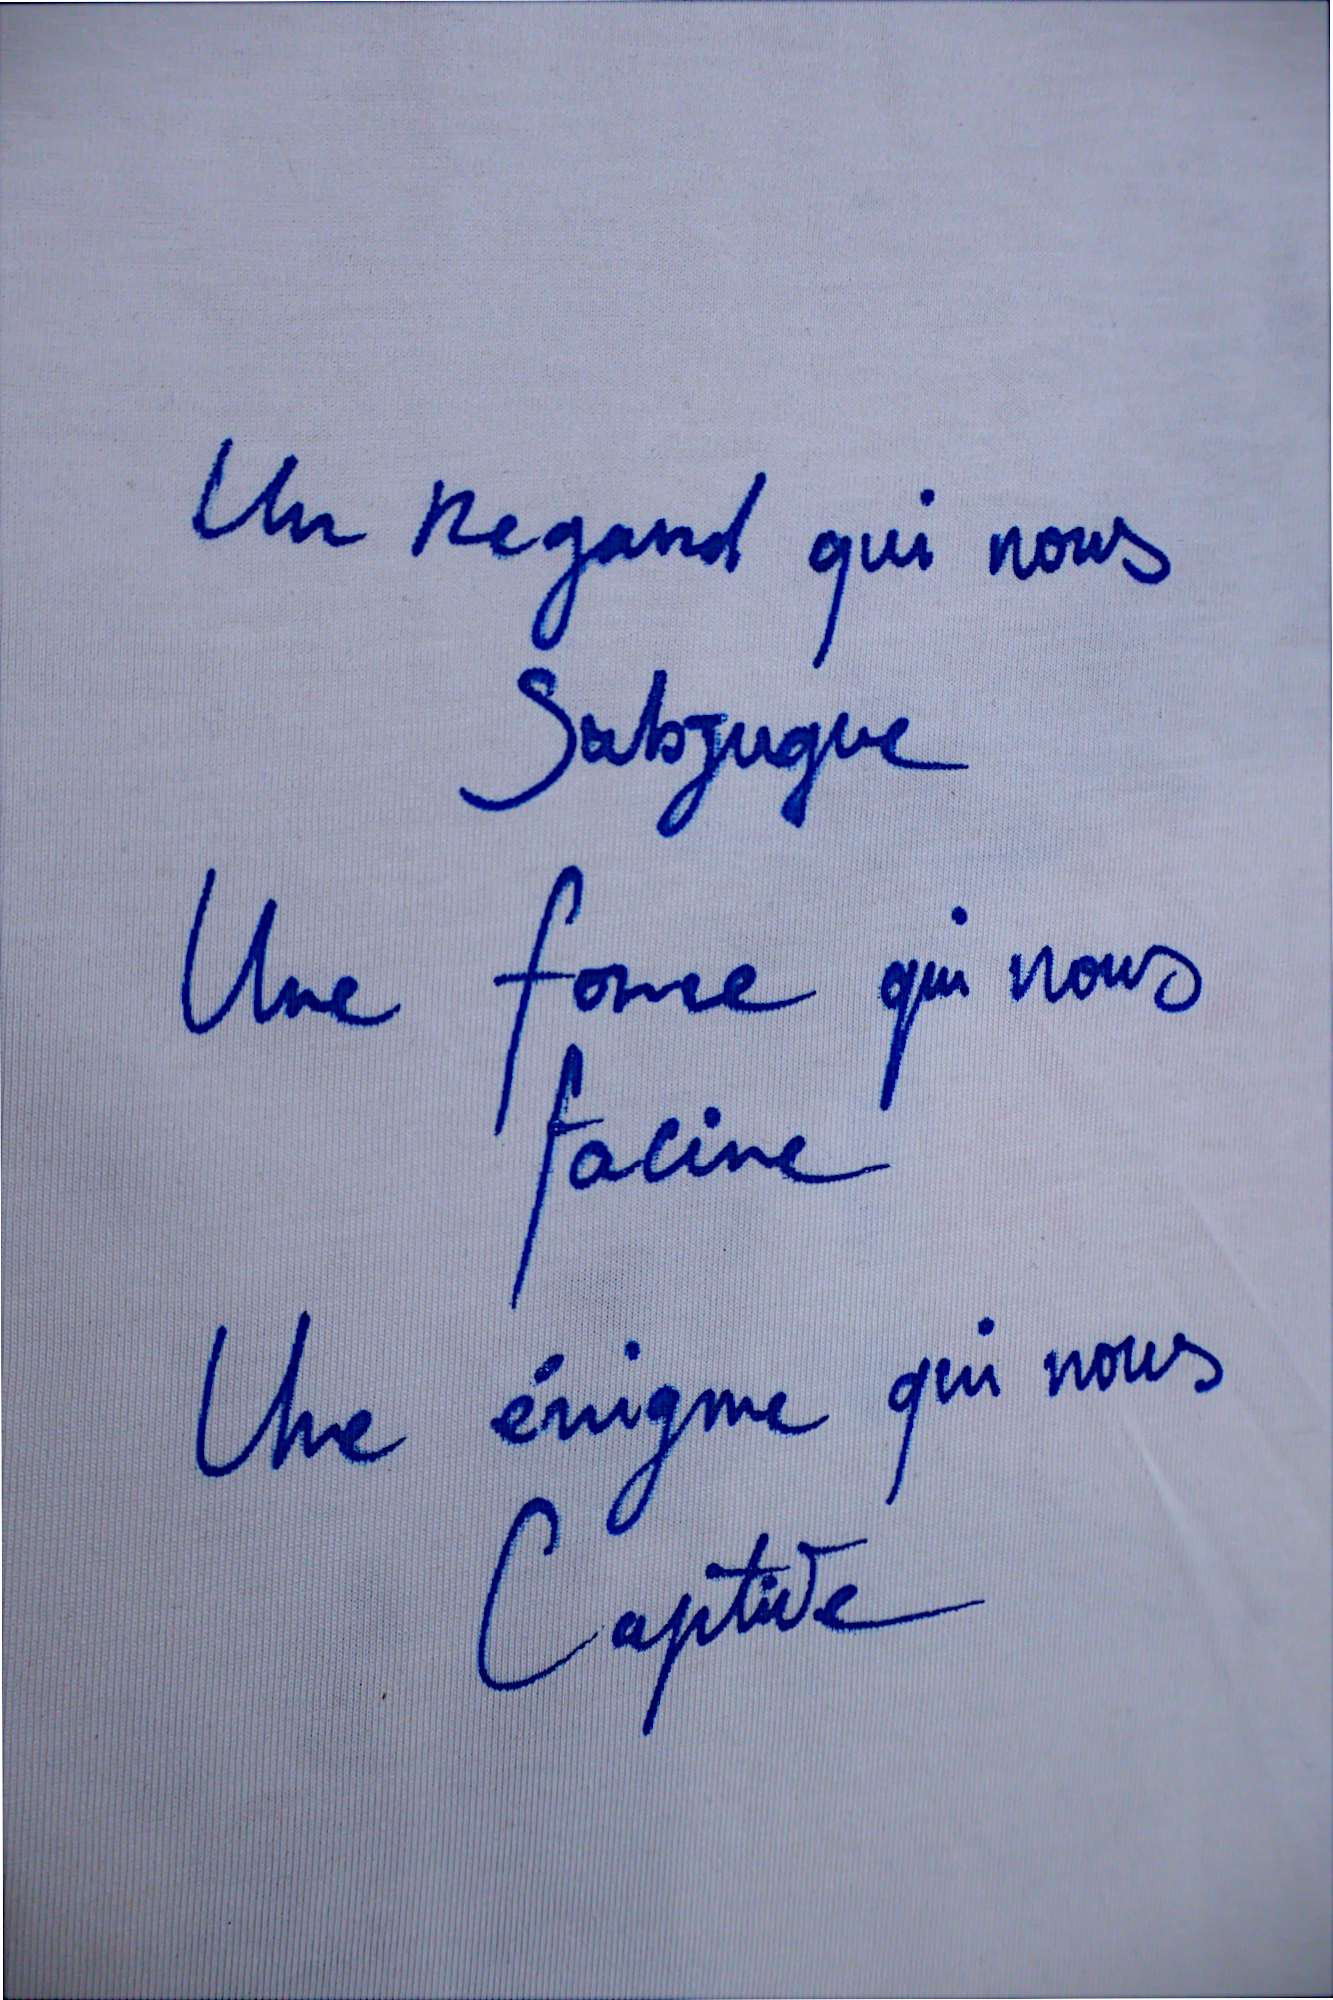 Un regard qui nous
Subjugue
Une force qui nous
facine
Une énigme qui nous
Captive